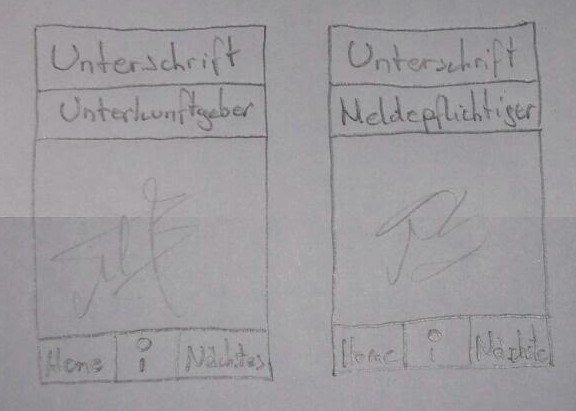 Unterschrift
Unterkunftgeber
Home i Nächstes
Unterschrift
Meldepflichtiger
Home i